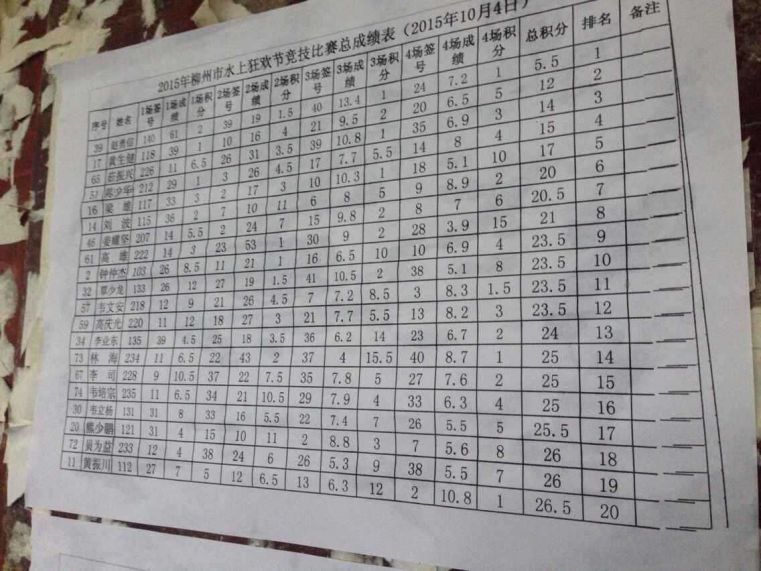 2015年柳州市水上狂欢节竞技比赛总成绩表（2015年10月4日）
序号 姓名 1场签号 1场成绩 1场积分 2场签号 2场成绩 2场积分 3场签号 3场成绩 3场积分 4场签号 4场成绩 4场积分 总积分 排名 备注
39 赵勇信 140 61 2 39 19 1.5 40 13.4 1 24 7.2 1 5.5 1
17 黄生健 118 39 1 10 16 4 21 9.5 2 20 6.5 5 12 2
65 茹振兴 226 11 6.5 26 31 3.5 39 10.8 1 35 6.9 3 14 3
51 212 29 1 3 26 4.5 17 7.7 5.5 14 8 4 15 4
16 梁雄 117 33 3 2 17 3 10 10.3 1 18 5.1 10 17 5
14 刘波 115 36 2 7 10 11 6 8 5 9 8.9 2 20 6
46 姜耀坚 207 14 5.5 2 24 7 15 9.8 2 8 7 6 20.5 7
61 高雄 222 14 3 23 53 1 30 9 2 28 3.9 15 21 8
2 钟仲杰 103 26 8.5 11 21 1 16 6.5 10 10 6.9 4 23.5 9
32 覃少龙 133 26 12 27 19 1.5 41 10.5 2 38 5.1 8 23.5 10
57 韦文安 218 12 9 21 26 4.5 7 7.2 8.5 3 8.3 1.5 23.5 11
59 高庆光 220 11 12 18 27 3 21 7.7 5.5 13 8.2 3 23.5 12
34 李业东 135 39 4.5 25 18 3.5 36 6.2 14 23 6.7 2 24 13
73 林海 234 11 6.5 22 43 2 37 4 15.5 40 8.7 1 25 14
67 李司 228 9 10.5 37 22 7.5 35 7.8 5 27 7.6 2 25 15
74 韦培宗 235 11 6.5 34 21 10.5 29 7.9 4 33 6.3 4 25 16
30 韦立杨 131 31 8 33 16 5.5 22 7.4 7 26 5.5 5 25.5 17
20 熊少鹏 121 31 4 15 10 11 2 8.8 3 7 5.6 8 26 18
72 吴为益 233 12 4 38 24 6 26 5.3 9 38 5.5 7 26 19
11 黄振川 112 27 7 5 12 6.5 13 6.3 12 2 10.8 1 26.5 20